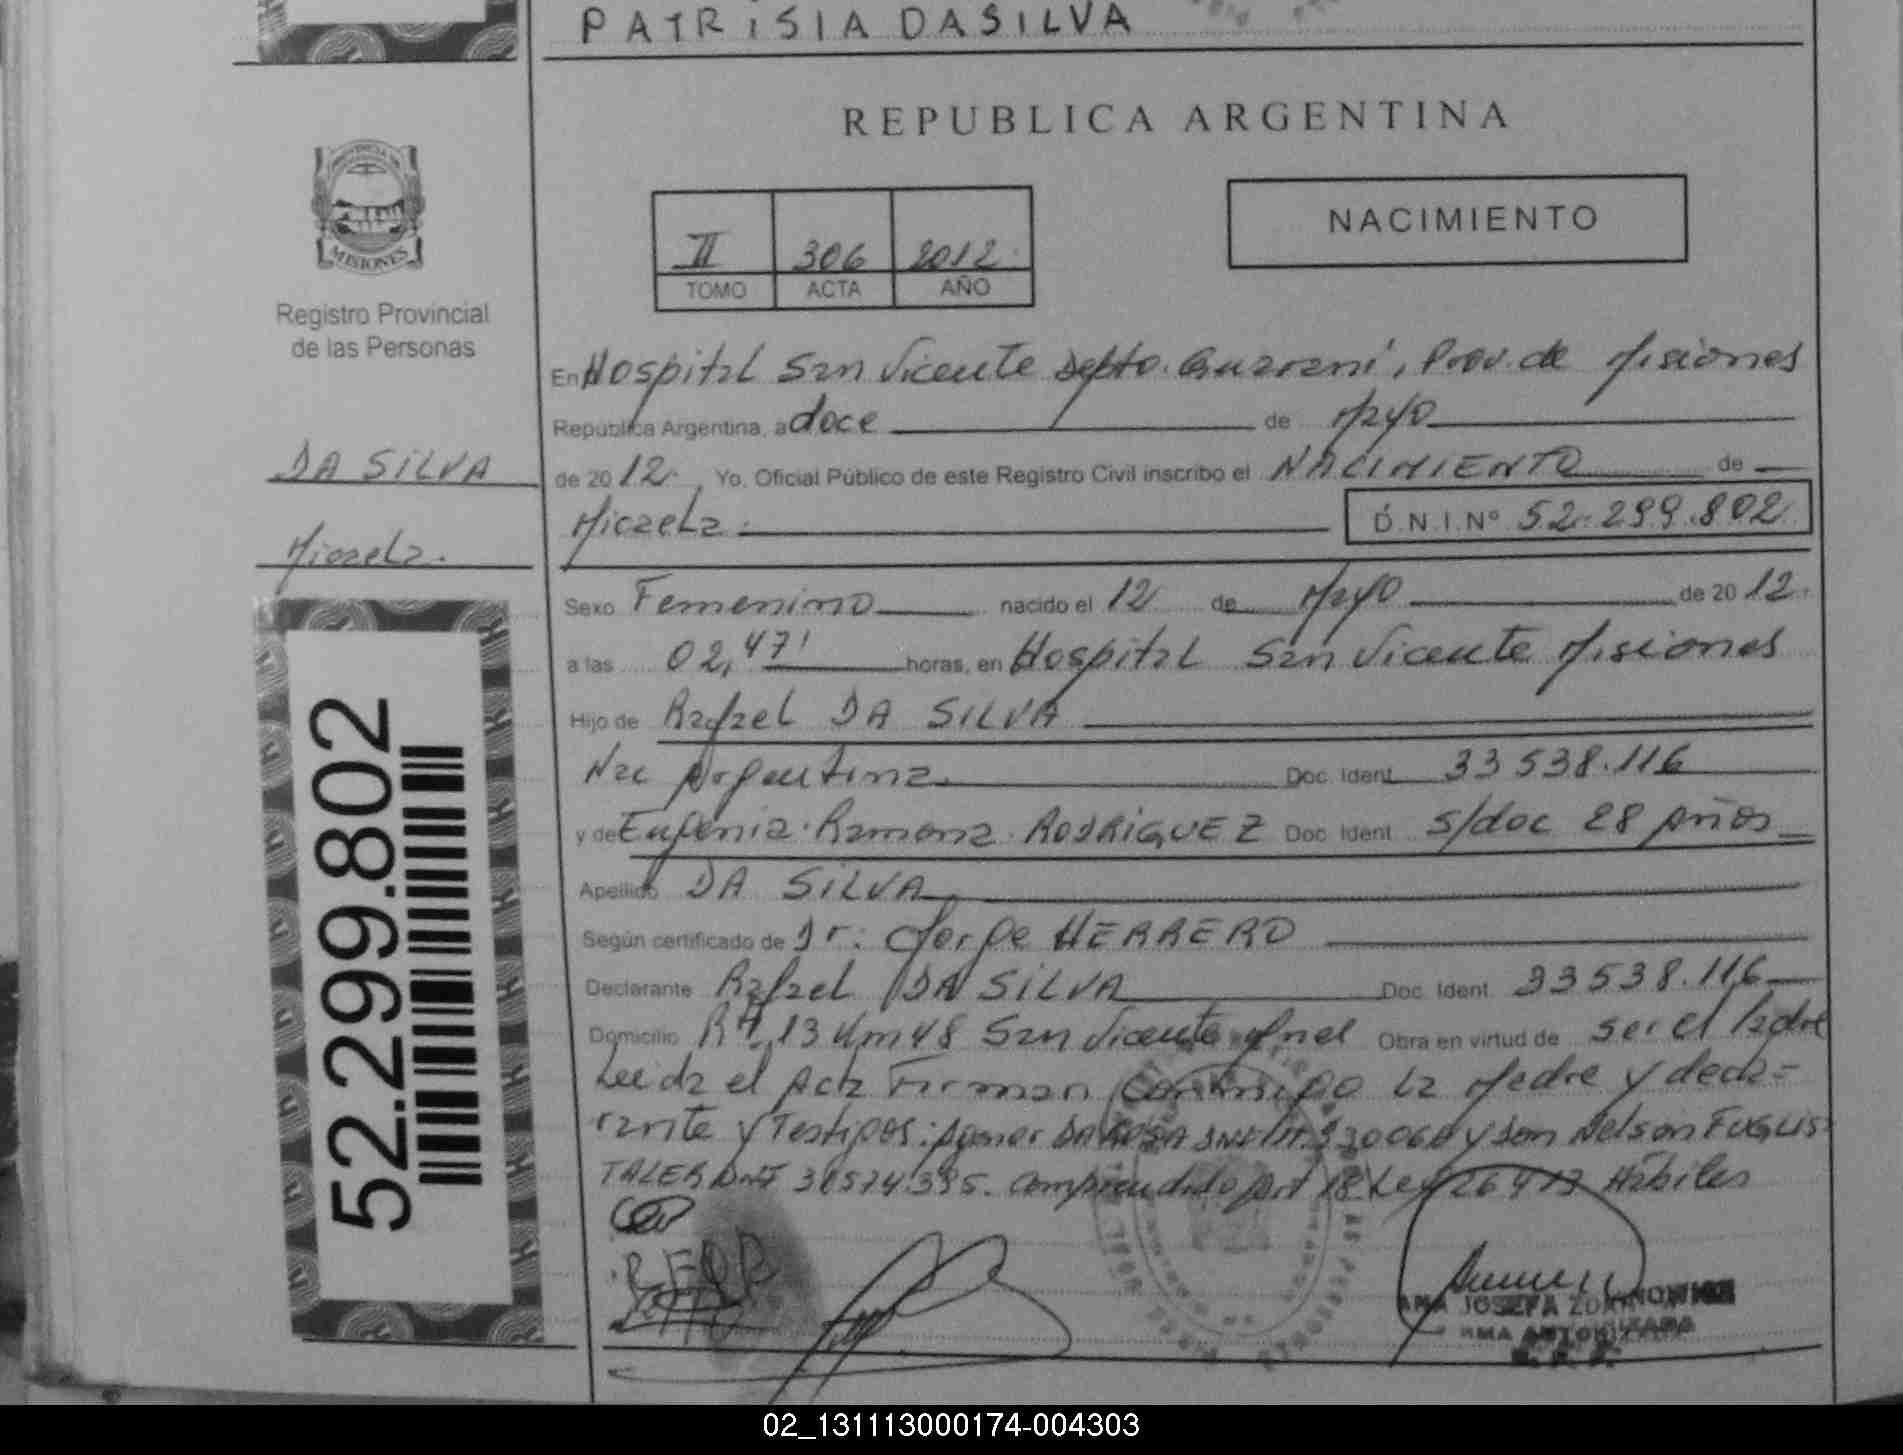 PATRiSIA DASILVA
REPUBLICA ARGENTINA
PROVINCIA DE
MISIONES
Registro Provincial
de las Personas
II 306 2012
TOMO ACTA AÑO
NACIMIENTO
En Hospital San Vicente Depto. Guaraní, Prov. de Misiones
República Argentina, a doce de Mayo
DA SiLVA
de 2012. Yo, Oficial Público de este Registro Civil inscribo el NACIMIENTO de
Micaela. D.N.I.Nº 52.299.802
Micaela.
Sexo Femenino nacido el 12 de Mayo de 2012.
a las 02,47' horas, en Hospital San Vicente Misiones
Hijo de Rafael DA SILVA
Nac Argentina. Doc. Ident. 33538.116
y de Eugenia Ramona RODRiGUEZ Doc. Ident. s/doc 28 Años
Apellido DA SiLVA
Según certificado de Dr. Jorge HERRERO
Declarante Rafael DA SiLVA Doc. Ident. 33538.116
Domicilio Rta. 13 Km 48 San Vicente Mnes Obra en virtud de ser el Padre
Leida el Acta Firman conmigo la Madre y decla=
rante y Testigos: y Nelson FUGLIS
TALER DNI comprendido Art 18 Ley 26413 Hábiles
52.299.802
ANA JOSEFA
FIRMA AUTORIZADA
02_131113000174-004303